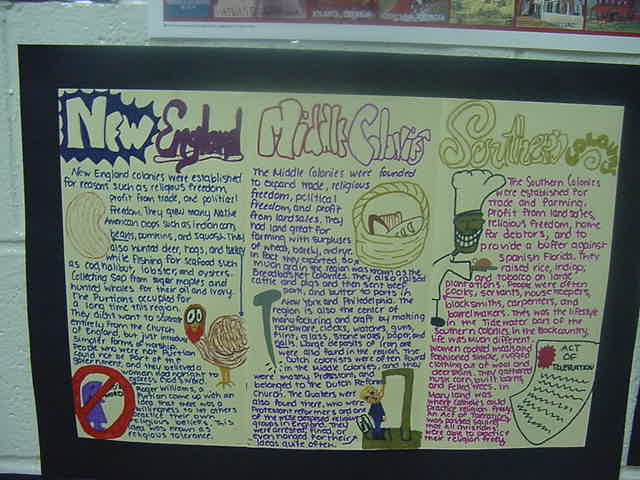 New England
New England colonies were established
for reasons such as religious freedom,
profit from trade, and political
freedom. They grew many Native
American crops such as indian corn,
beans, pumpkins, and squash. They
also hunted deer, hogs, and turkey
while fishing for seafood such
as cod, halibut, lobster, and oysters.
Collecting sap from sugar maples and
hunted whales for their oil and ivory.
The Puritans occupied for
a long time this region.
They didn't want to separate
entirely from the Church
of England, but just introduce
simpler forms of worship.
People who were not Puritan
could not be part of the
and they believed a
common man had no right to
God's word.
Roger Williams, a
Puritan came up with an
idea that was a
willingness to let others
practice their own
religious beliefs. This
idea was known as
religious tolerance.
Middle Colonies
The Middle Colonies were founded
to expand trade, religious
freedom, political
freedom, and profit
from land sales. They
had land great for
farming with surpluses
of wheat, barley, and rye.
In fact they exported so
much grain the region was known as the
Breadbasket Colonies. They also raised
cattle and pigs and then sent beef,
pork, and butter to ports in
New York and Philadelphia. The
region is also the center of
manufacturing and craft by making
hardware, clocks, watches, guns,
flint, glass, stone wares, paper, and
nails. Large deposits of iron are
were also found in the region. The
Dutch colonists were often found
in the Middle Colonies, and they
were mostly Protestants, and
belonged to the Dutch Reform
Church. The Quakers were
also found there, who were
Protestant reformers and one
of the most despised religious
groups in England. They
were arrested, fined, or
even hanged for their
ideas quite often.
Southern Colonies
The Southern Colonies
were established for
trade and farming,
profit from land sales,
religious freedom, home
for debtors, and to
provide a buffer against
Spanish Florida. They
raised rice, indigo,
tobacco on large
plantations. People were often
cooks, servants, housekeepers,
blacksmiths, carpenters, and
barrel makers. This was the lifestyle
in the Tidewater part of the
Southern colonies. In the backcountry,
life was much different.
Women cooked meals and
fashioned simple, rugged
clothing out of wool or
deerskin. They gathered
corn, built barns,
and felled trees. In
Maryland was
where Catholics could
practice religion freely.
An Act of Toleration
was passed saying
that all Christians
were able to practice
their religion freely.
ACT
OF
TOLERATION